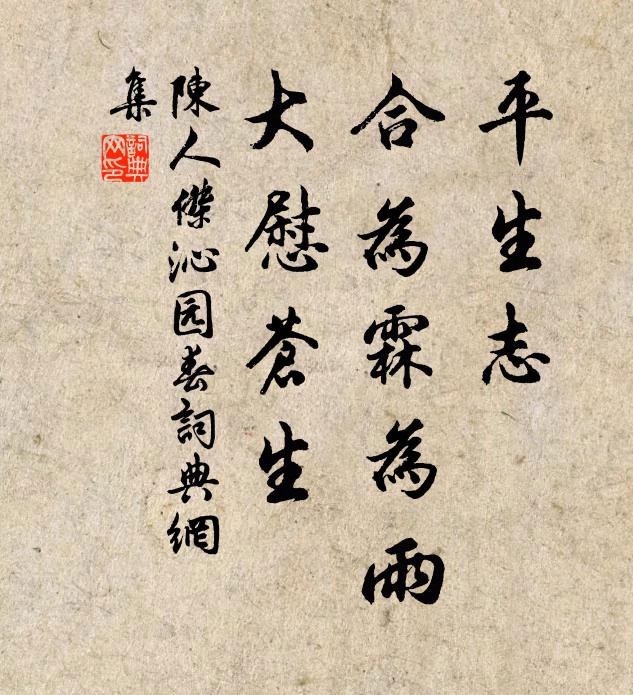 平生志
合為霖為雨
大慰蒼生
陳人傑沁园春詞典網
集
詞典
网印